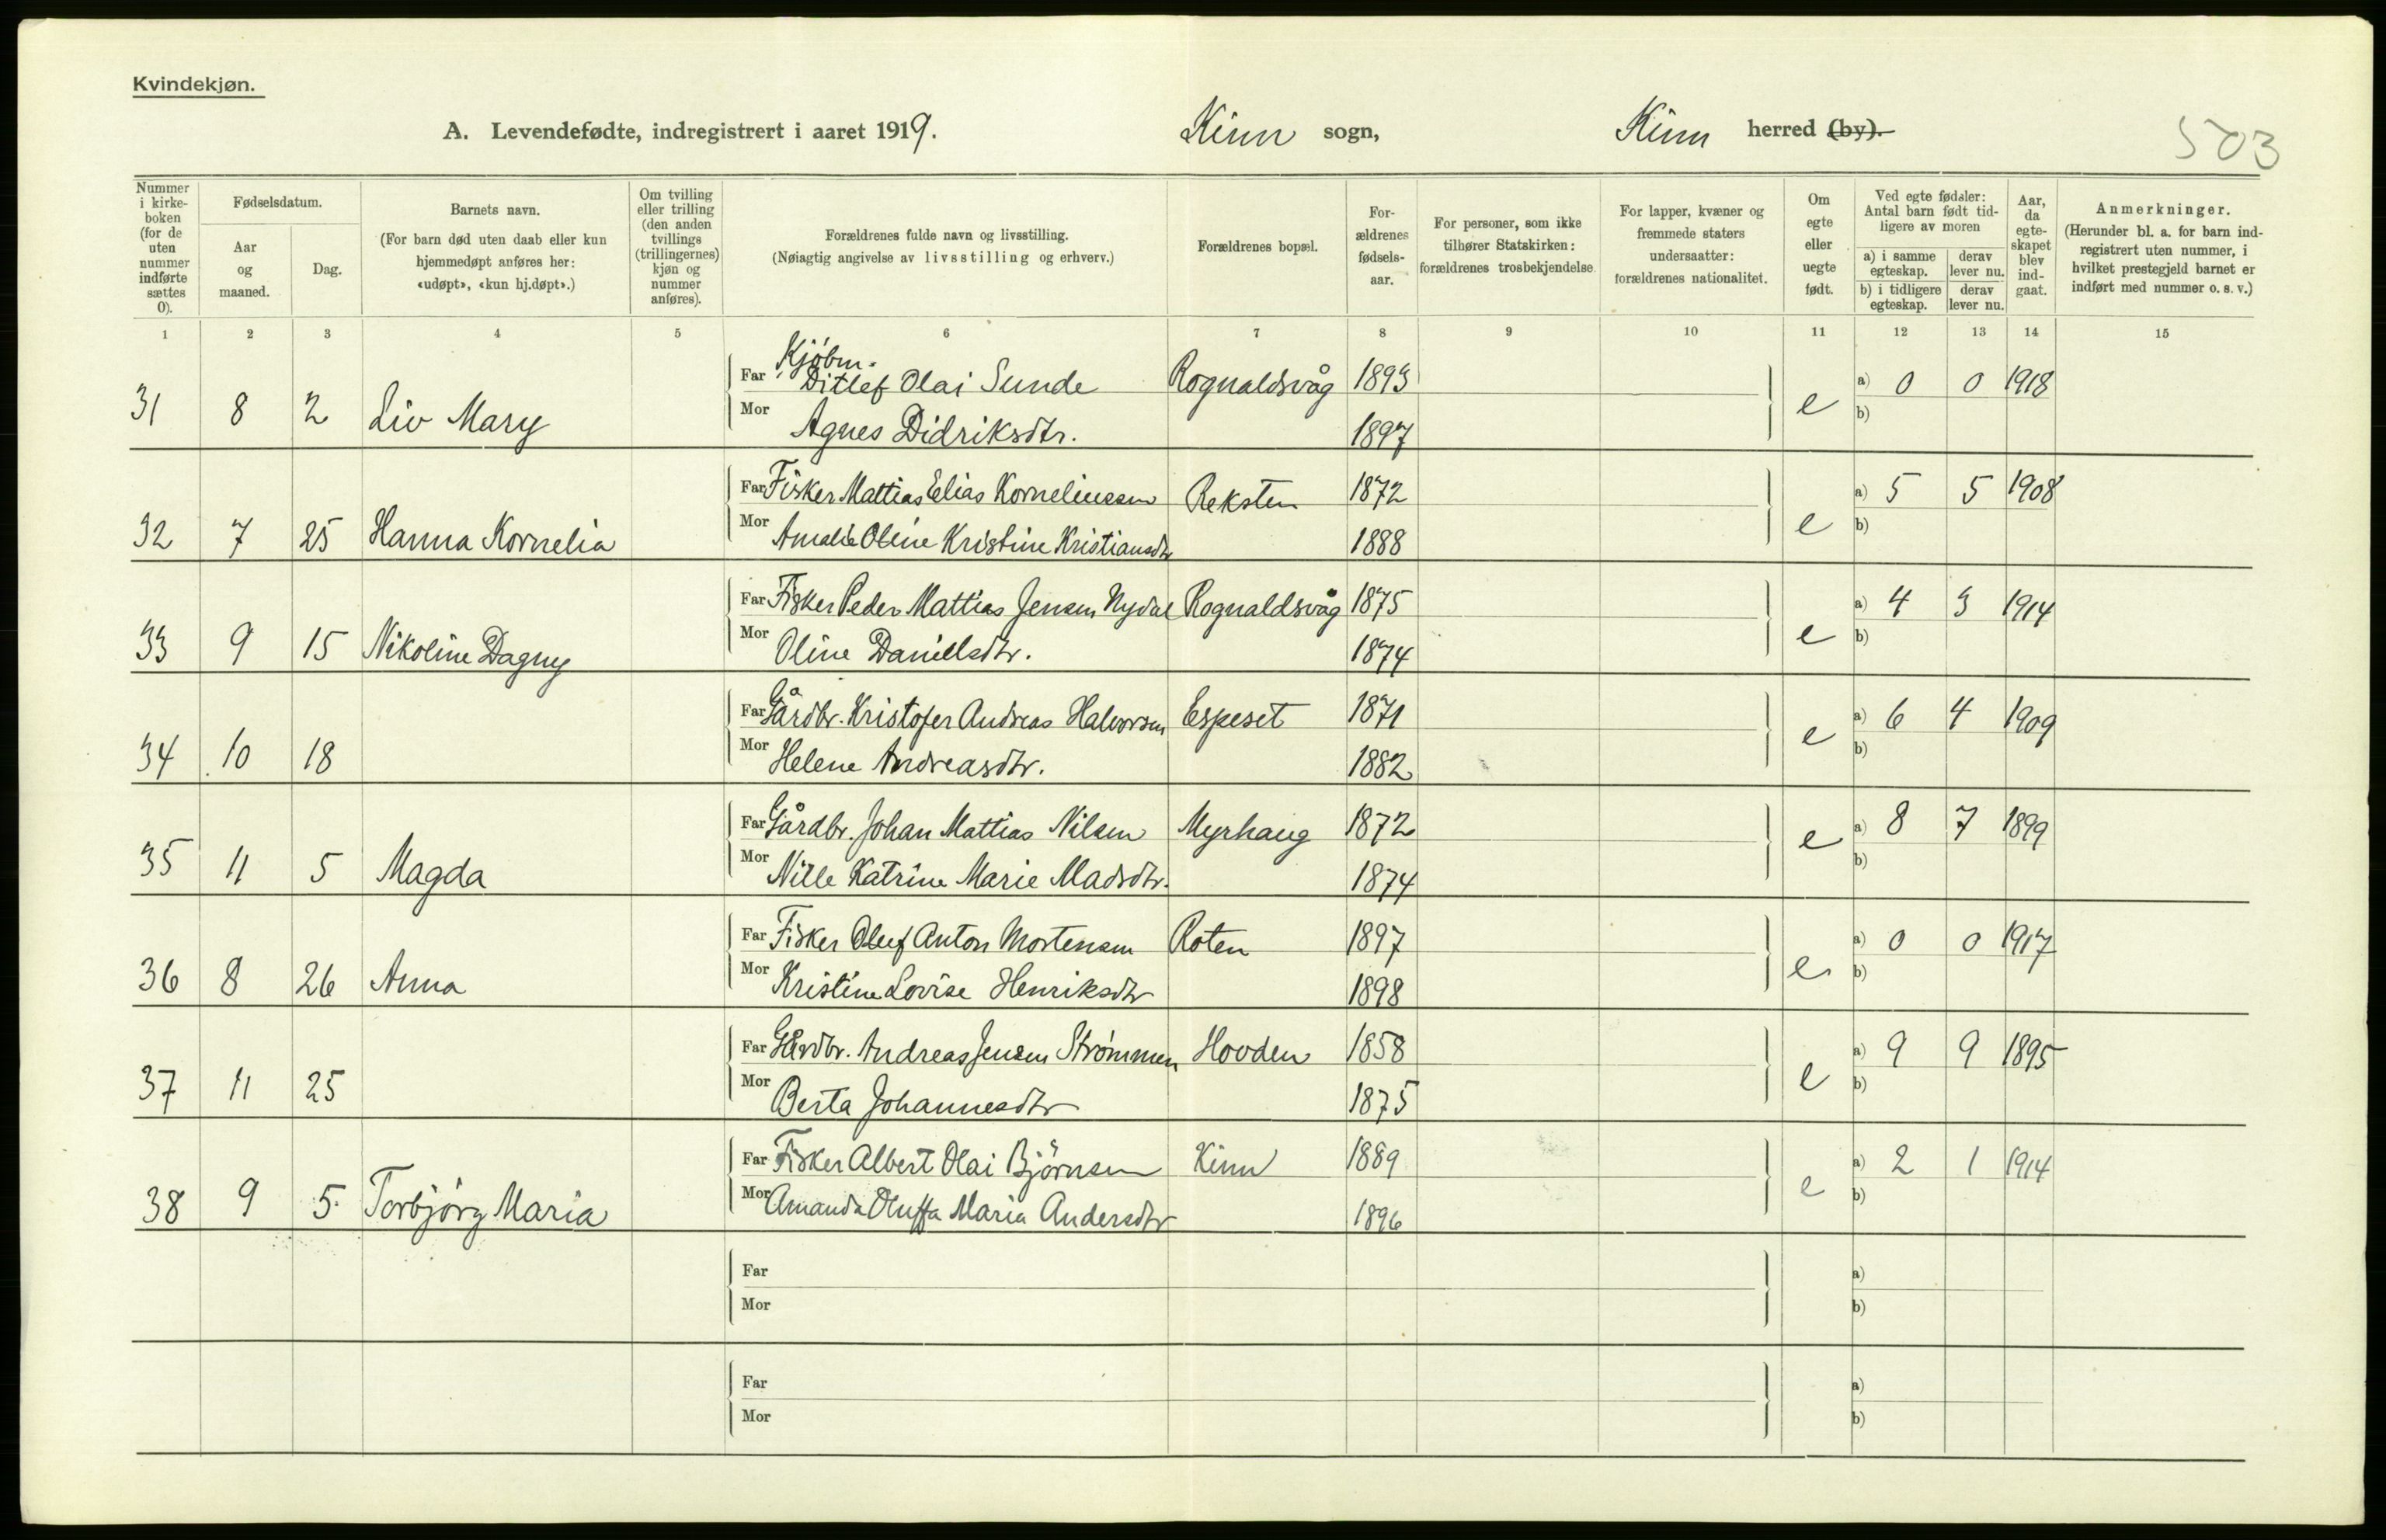 Kvindekjøn.
A. Levendefødte, indregistrert i aaret 1919. Kinn sogn, Kinn herred (by).
503
Nummer i kirkeboken (for de uten nummer indførte sættes 0).
Fødselsdatum.
Aar og maaned.
Dag.
Barnets navn.
(For barn død uten daab eller kun hjemmedøpt anføres her: «udøpt», «kun hj.døpt».)
Om tvilling eller trilling (den anden tvillings (trillingernes) kjøn og nummer anføres).
Forældrenes fulde navn og livsstilling.
(Nøiagtig angivelse av livsstilling og erhverv.)
Forældrenes bopæl.
Forældrenes fødselsaar.
For personer, som ikke tilhører Statskirken: forældrenes trosbekjendelse
For lapper, kvæner og fremmede staters undersaatter: forældrenes nationalitet.
Om egte eller uegte født.
Ved egte fødsler: Antal barn født tidligere av moren
a) i samme egteskap. derav lever nu.
b) i tidligere egteskap. derav lever nu.
Aar, da egteskapet blev indgaat.
Anmerkninger.
(Herunder bl. a. for barn indregistrert uten nummer, i hvilket prestegjeld barnet er indført med nummer o. s. v.)
1 2 3 4 5 6 7 8 9 10 11 12 13 14 15
Kjøbm.
Far Ditlef Olai Sunde Rognaldsvåg 1893 a) 0 0 1918
31 8 2 Liv Mary Mor Agnes Didriksdtr. 1897 e b)
Far Fisker Mattias Elias Korneliussen Reksten 1872 a) 5 5 1908
32 7 25 Hanna Kornelia Mor Amalie Oline Kristine Kristiansdtr 1888 e b)
Far Fisker Peder Mattias Jensen Nydal Rognaldsvåg 1875 a) 4 3 1914
33 9 15 Nikoline Dagny Mor Oline Danielsdtr. 1874 e b)
Far Gårdbr. Kristofer Andreas Halvorsen Espeset 1871 a) 6 4 1909
34 10 18 Mor Helene Andreasdtr. 1882 e b)
Far Gårdbr. Johan Mattias Nilsen Myrhaug 1872 a) 8 7 1899
35 11 5 Magda Mor Nille Katrine Marie Madsdtr. 1874 e b)
Far Fisker Oluf Anton Mortensen Roten 1897 a) 0 0 1917
36 8 26 Anna Mor Kristine Lovise Henriksdtr 1898 e b)
Far Gårdbr. Andreas Jensen Strømmen Hovden 1858 a) 9 9 1895
37 11 25 Mor Berta Johannesdtr 1875 e b)
Far Fisker Albert Olai Bjørnsen Kinn 1889 a) 2 1 1914
38 9 5. Torbjørg Maria Mor Amanda Oluffa Maria Andersdtr 1896 e b)
Far a)
Mor b)
Far a)
Mor b)